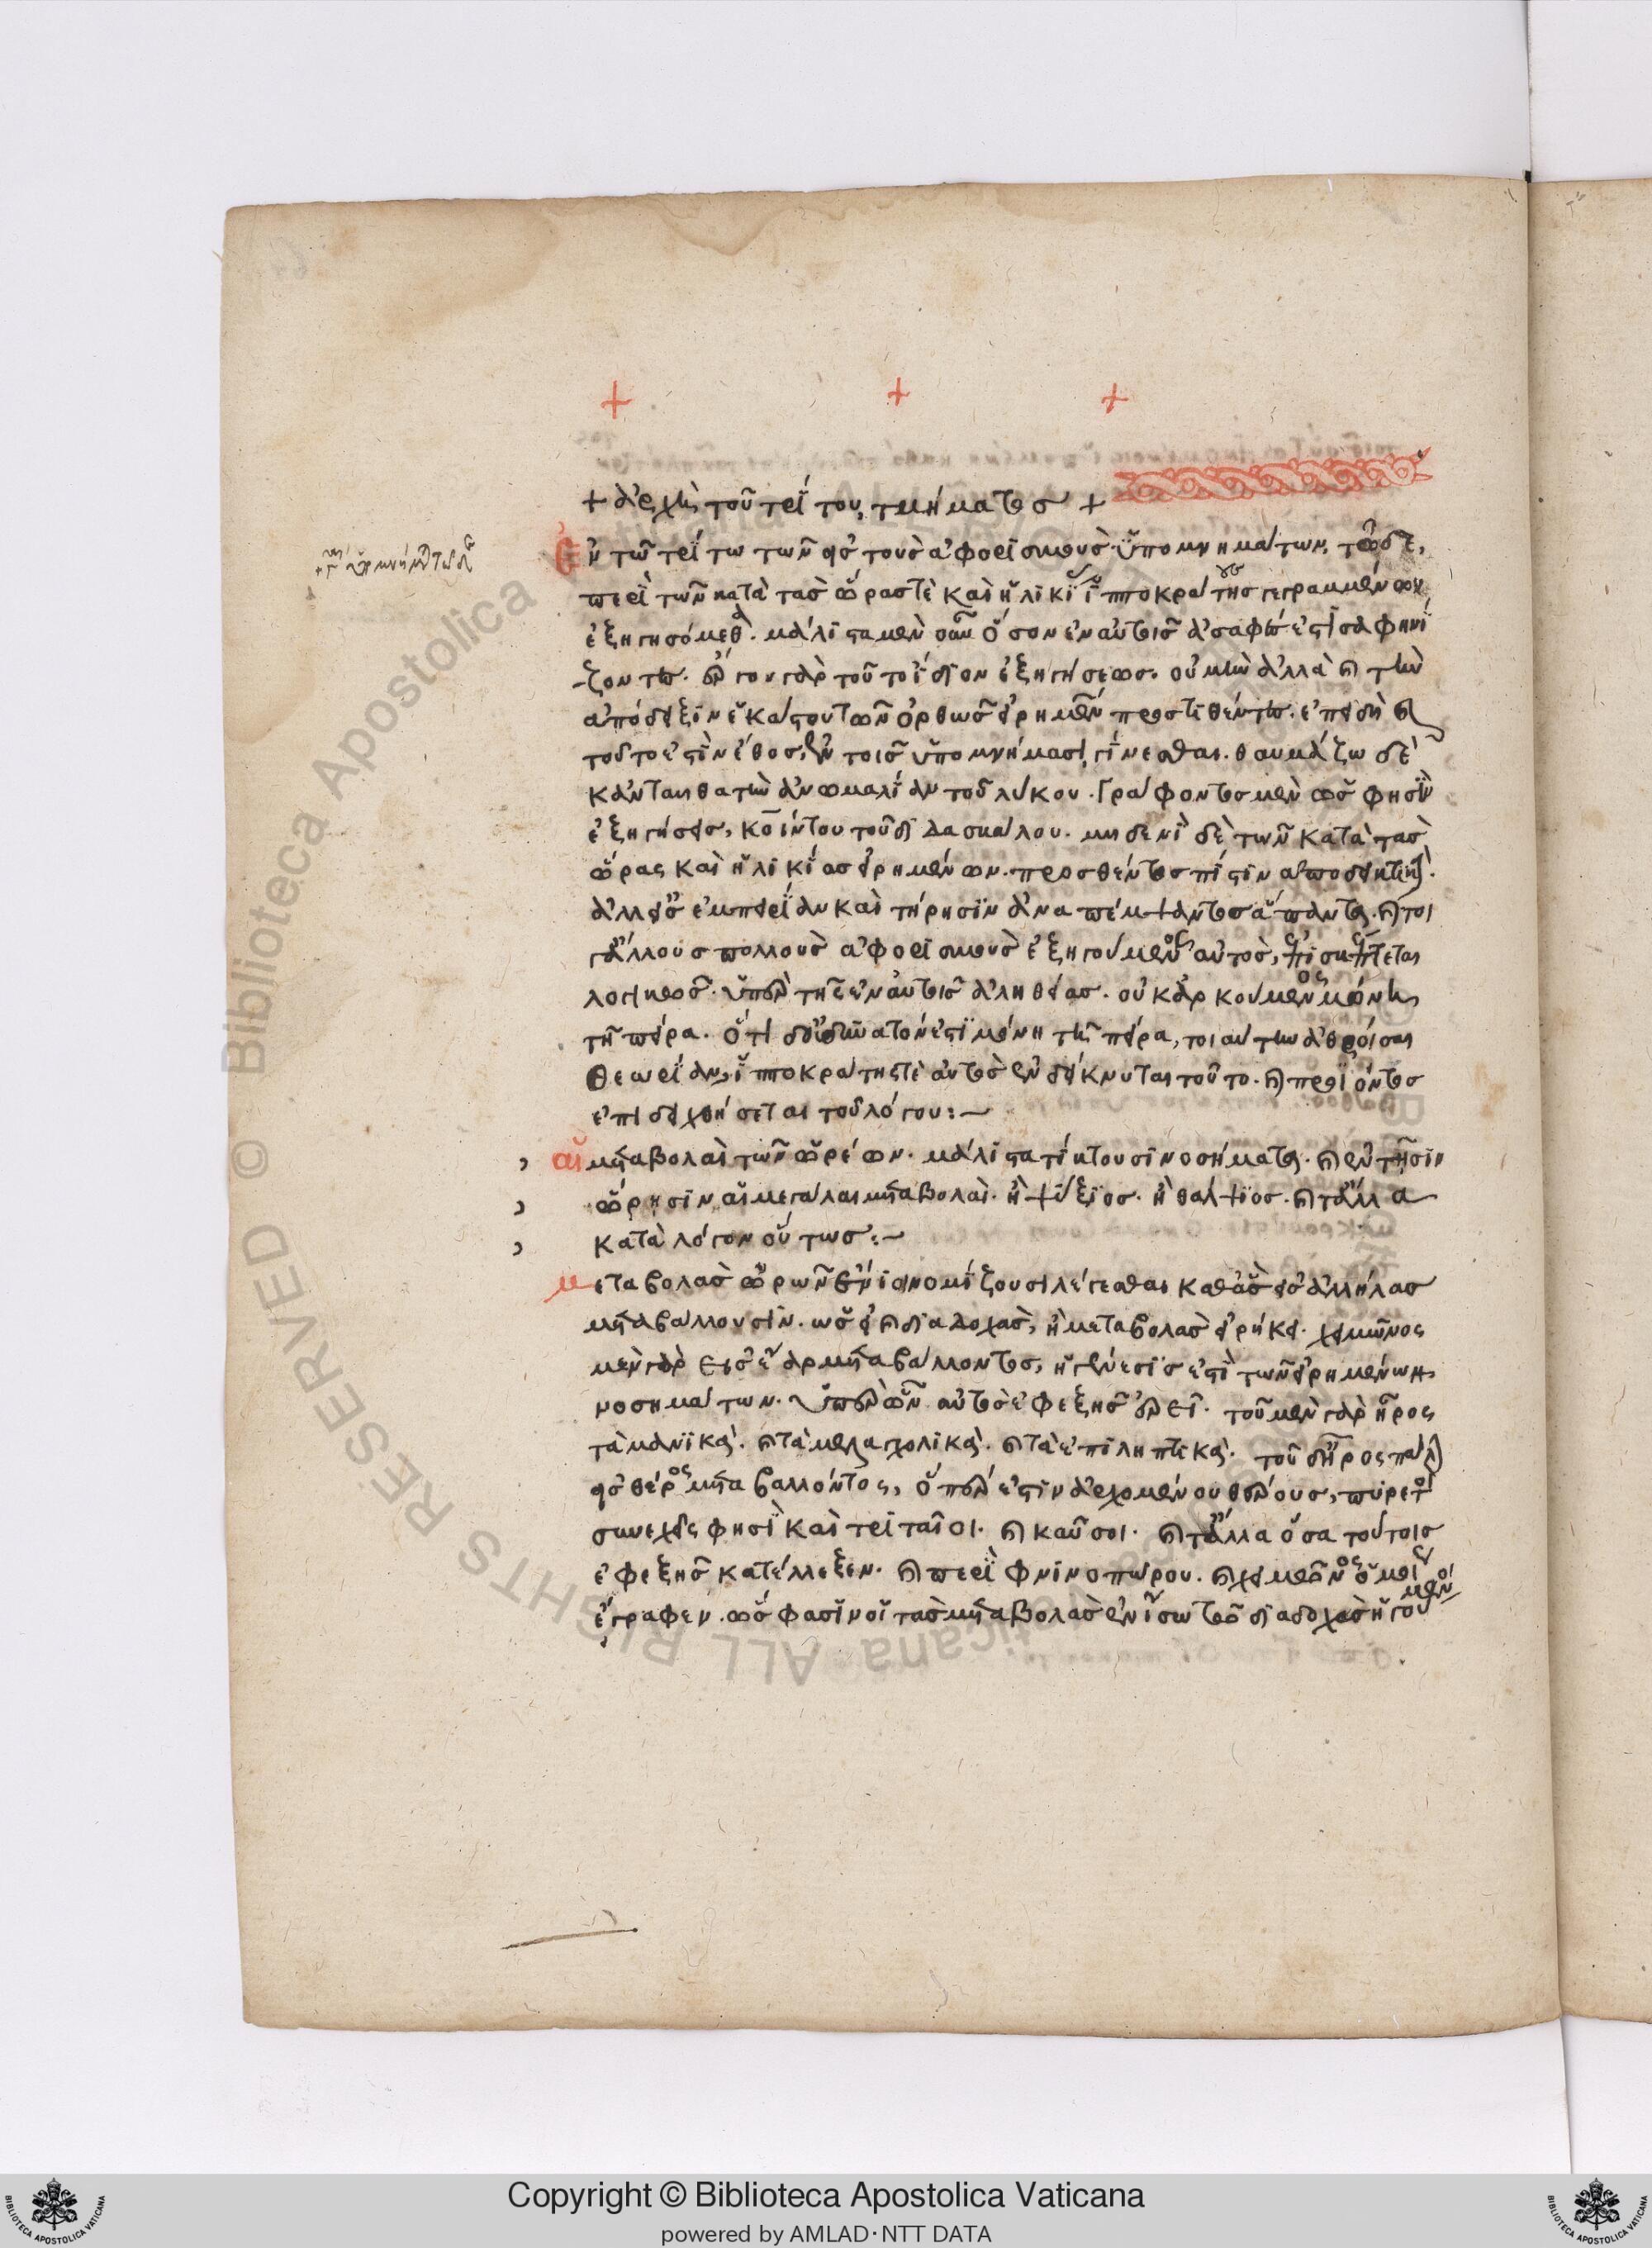 + ἀρχὴ τοῦ τρίτου τμήματος +
Ἐν τῶ τρίτω τῶν εἰς τοὺς ἀφορισμοὺς ὑπομνημάτων, τῶδε,
περὶ τῶν κατὰ τὰς ὥρας τὲ καὶ ἡλικίας ἱπποκράτους γεγραμμένων
ἐξηγησόμεθα. μάλιστα μὲν οὖν ὅσον ἐν αὐτοῖς ἀσαφές ἐστι σαφηνί
ζοντες. ἔργον γὰρ τοῦτο ἴδιον ἐξηγήσεως. οὐ μὴν ἀλλὰ καὶ τὴν
ἀπόδειξιν ἑκάστου τῶν ὀρθῶς εἰρημένων προστιθέντες. ἐπειδὴ καὶ
τοῦτο ἐστὶν ἔθος, ἐν τοῖς ὑπομνήμασι γίνεσθαι. θαυμάζω δὲ
κἀνταῦθα τὴν ἀνωμαλίαν τοῦ λύκου. Γράφοντος μὲν ὥς φησὶν
ἐξηγήσεις, κοΐντου τοῦ διδασκάλου. μηδενὶ δὲ τῶν κατὰ τὰς
ὥρας καὶ ἡλικίας εἰρημένων. προσθέντος πίστιν ἀποδεικτικὴν.
ἀλλ' εἰς ἐμπειρίαν καὶ τήρησιν ἀναπέμψαντος ἅπαντα. καίτοι
γ' ἄλλους πολλοὺς ἀφορισμοὺς ἐξηγούμενος αὐτὸς, ἐπισκέπτεται
λογικῶς. ὑπὲρ τῆς ἐν αὐτοῖς ἀληθείας. οὐκ ἀρκούμενος μόνη
τῆ πείρα. ὅτι δὲ δυνατόν ἐστι μόνη τῆ πείρα, τοιαύτην ἀθροίσαι
θεωρίαν, ἱπποκράτης τὲ αὐτὸς ἐνδείκνυται τοῦτο. καὶ προϊόντος
ἐπιδειχθήσεται τοῦ λόγου:~
αἱ μεταβολαὶ τῶν ὡρέων. μάλιστα τίκτουσι νοσήματα. καὶ ἐν τῆσιν
ὥρησιν αἱ μεγάλαι μεταβολαὶ. ἢ ψύξιος. ἢ θάλψιος. καὶ τἄλλα
κατὰ λόγον οὕτως:~
μεταβολὰς ὡρῶν ἔνιοι νομίζουσι λέγεσθαι καθ' ἃς εἰς ἀλλήλας
μεταβάλλουσιν. ὡς εἰ καὶ διαδοχὰς, ἢ μεταβολὰς εἰρήκει. χειμῶνος
μὲν γὰρ εἰς ἔαρ μεταβάλλοντος, ἡ γένεσις ἐστὶ τῶν εἰρημένων
νοσημάτων. ὑπὲρ ὧν αὐτὸς ἐφεξῆς ἐρεῖ. τοῦ μὲν γὰρ ἦρος
τὰ μανικὰ. καὶ τὰ μελαγχολικὰ. καὶ τὰ ἐπιληπτικὰ. τοῦ δ' ἦρος πάλιν
εἰς θέρος μεταβάλλοντος, ὅπέρ ἐστιν ἀρχομένου θέρους, πυρετοὶ
συνεχεῖς φησὶ καὶ τριταῖοι. καὶ καῦσοι. καὶ τἄλλα ὅσα τούτοις
ἐφεξῆς κατέλεξεν. καὶ περὶ φθινοπώρου. καὶ χειμῶνος ὁμοίως
ἔγραφεν. ὥς φασὶν οἱ τὰς μεταβολὰς ἐν ἴσω τῶ διαδοχὰς ἡγούμενοι